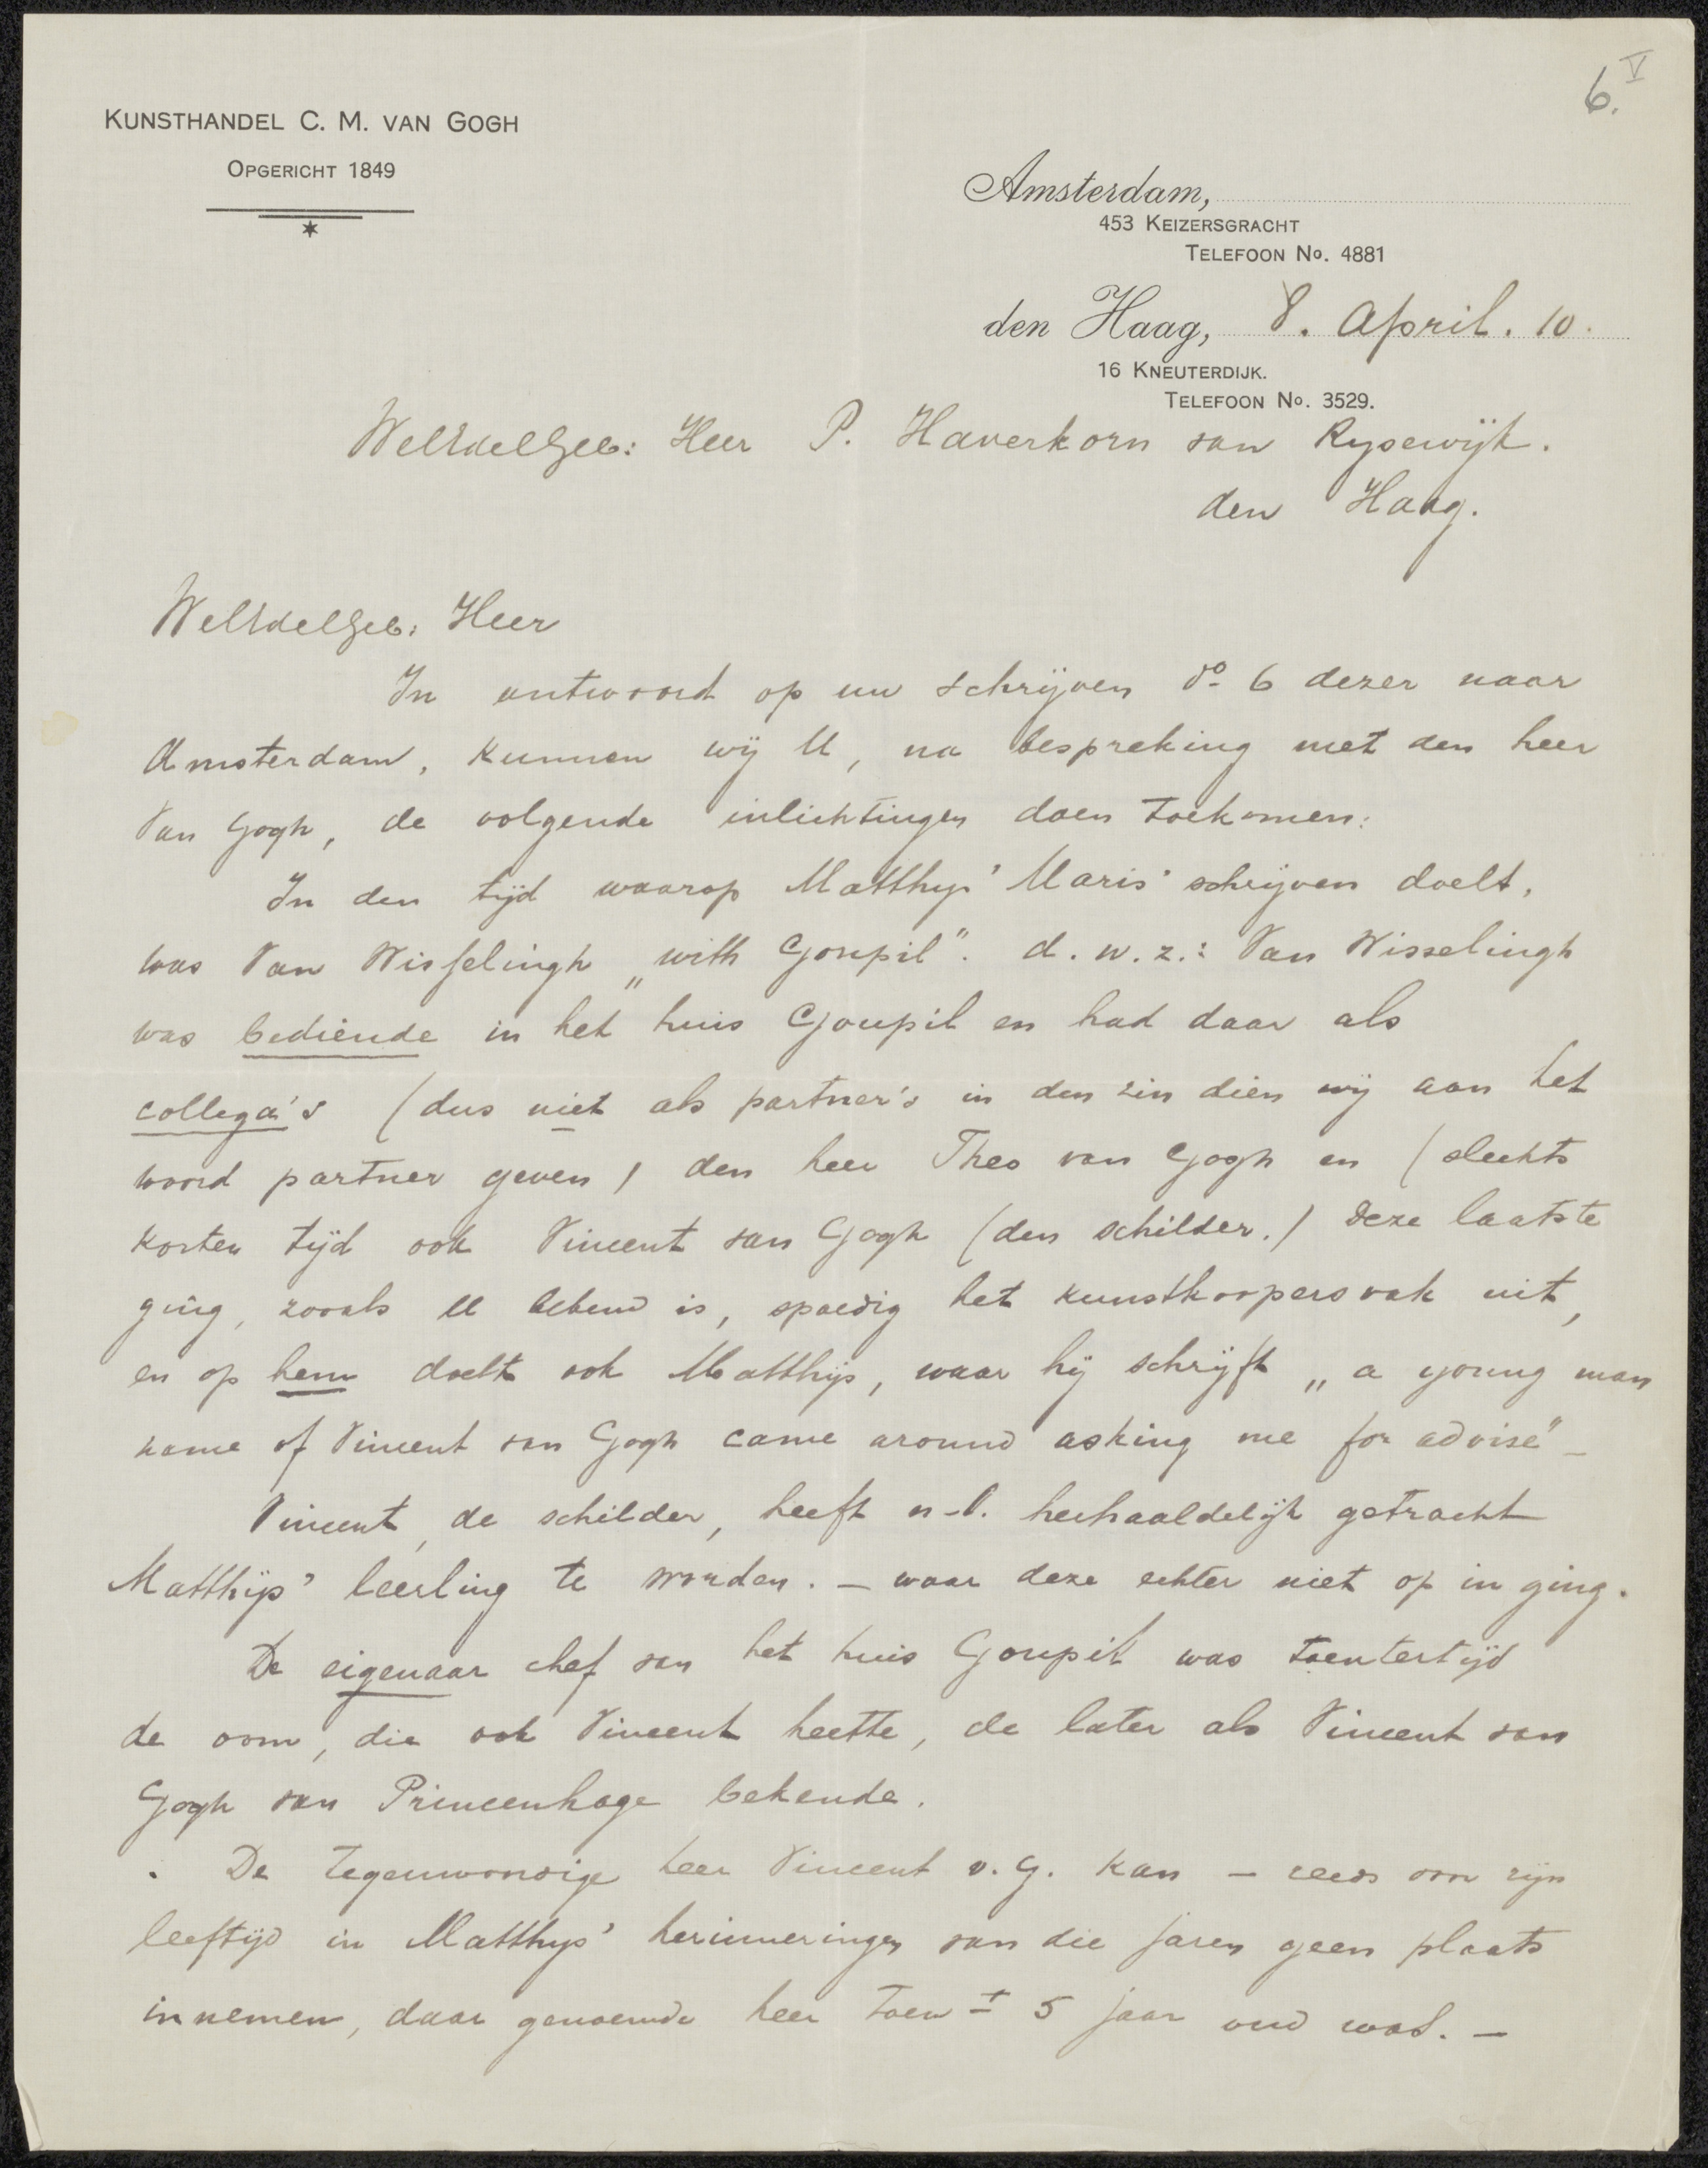 6. V
KUNSTHANDEL C. M. VAN GOGH
OPGERICHT 1849
Amsterdam,
453 KEIZERSGRACHT
TELEFOON No. 4881
den Haag, 8. April. 10.
16 KNEUTERDIJK.
TELEFOON No. 3529.
WelEdelGeb: Heer P. Haverkorn van Rysewijk.
den Haag.
WelEdelGeb: Heer
In antwoord op uw schrijven do 6 dezer naar
Amsterdam, kunnen wij U, na bespreking met den heer
Van Gogh, de volgende inlichtingen doen toekomen:
In den tijd waarop Matthys' Maris' schrijven doelt,
was Van Wisselingh „with Goupil". d.w.z.: Van Wisselingh
was bediende in het huis Goupil en had daar als
collega's (dus niet als partner's in den zin dien wij aan het
woord partner geven) den heer Theo van Gogh en (slechts
korten tijd ook Vincent van Gogh (den schilder.) Deze laatste
ging, zooals U bekend is, spoedig het kunstkoopersvak uit,
en op hem doelt ook Matthijs, waar hij schrijft „a young man
name of Vincent van Gogh came around asking me for advise" _
Vincent, de schilder, heeft n-l. herhaaldelijk getracht
Matthijs' leerling te worden. — waar deze echter niet op in ging.
De eigenaar chef van het huis Goupil was toentertijd
de oom, die ook Vincent heette, de later als Vincent van
Gogh van Princenhage bekende.
. De tegenwoordige heer Vincent v. G. kan — reeds om zijn
leeftijd in Matthys' herinneringen van die jaren geen plaats
innemen, daar genoemde heer toen ± 5 jaar oud was. —